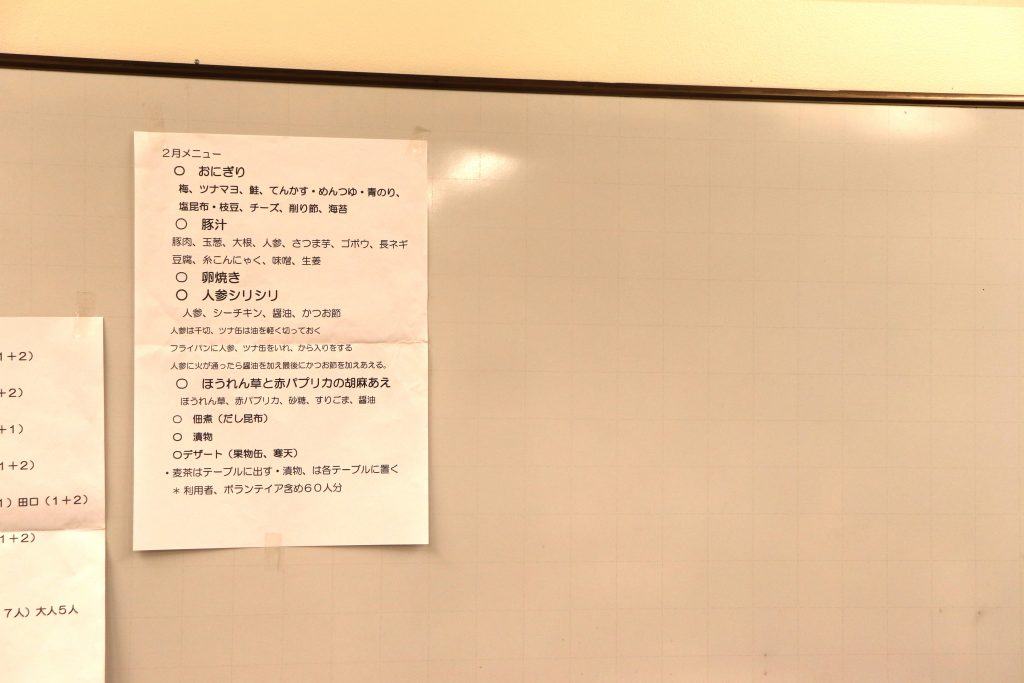 2月メニュー
○ おにぎり
梅、ツナマヨ、鮭、てんかす・めんつゆ・青のり、
塩昆布・枝豆、チーズ、削り節、海苔
○ 豚汁
豚肉、玉葱、大根、人参、さつま芋、ゴボウ、長ネギ
豆腐、糸こんにゃく、味噌、生姜
○ 卵焼き
○ 人参シリシリ
人参、シーチキン、醤油、かつお節
人参は千切、ツナ缶は油を軽く切っておく
フライパンに人参、ツナ缶をいれ、から入りをする
人参に火が通ったら醤油を加え最後にかつお節を加えあえる。
○ ほうれん草と赤パプリカの胡麻あえ
ほうれん草、赤パプリカ、砂糖、すりごま、醤油
○ 佃煮（だし昆布）
○ 漬物
○デザート（果物缶、寒天）
・麦茶はテーブルに出す・漬物、は各テーブルに置く
＊利用者、ボランテイア含め60人分
1＋2）
＋2）
＋1）
1＋2）
1）田口（1＋2）
1＋2）
7人）大人5人